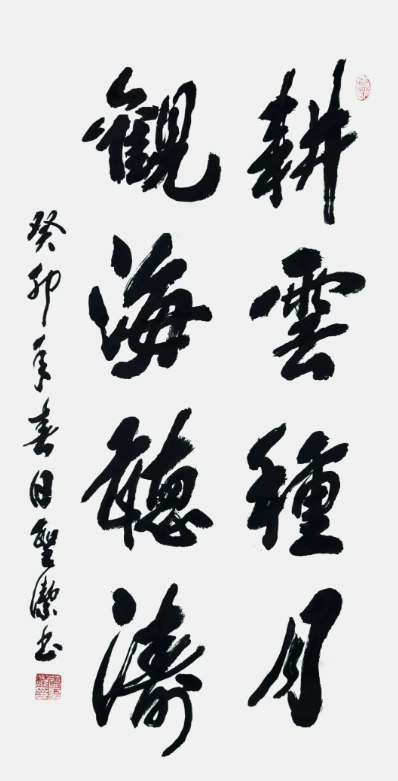 耕雲種月
觀海聽濤
癸卯年春日聖潔书